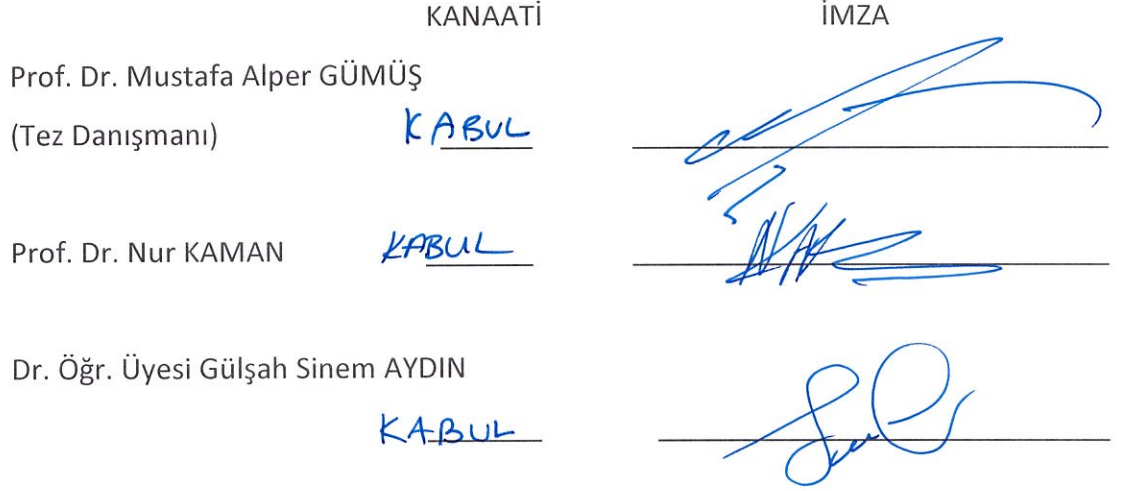 KANAATİ İMZA
Prof. Dr. Mustafa Alper GÜMÜŞ
(Tez Danışmanı) KABUL
Prof. Dr. Nur KAMAN KABUL
Dr. Öğr. Üyesi Gülşah Sinem AYDIN
KABUL